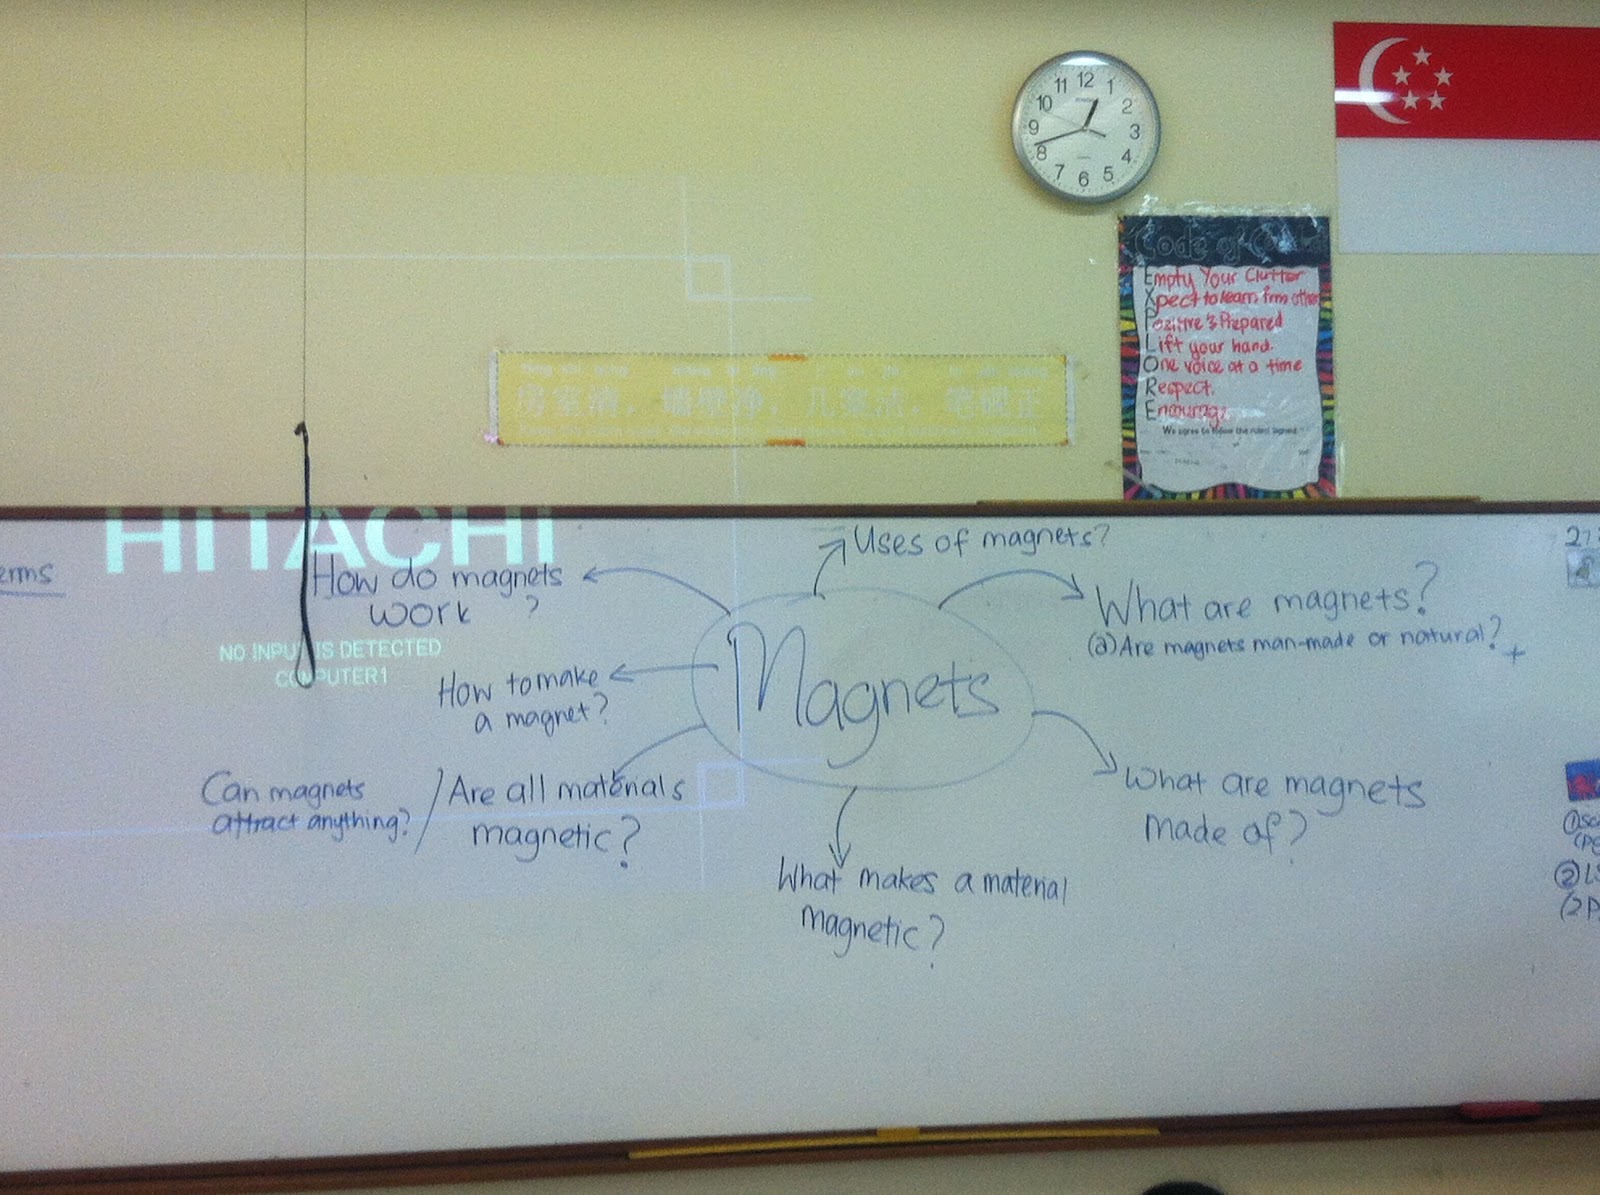 11 12 1
10 2
9 3
8 4
7 6 5
Code of
Empty Your Clutter
Xpect to learn from other
Pozitive & Prepared
Lift your hand.
One voice at a time
Respect.
Encourage
We agree to follow the rules signed
房室清，墙壁净，几案洁，笔砚正
HITACHI
NO INPUT IS DETECTED
COMPUTER1
erms
How do magnets
work ?
Uses of magnets?
What are magnets?
(a) Are magnets man-made or natural? +
How to make
a magnet?
Magnets
Can magnets
attract anything? /
Are all materials
magnetic?
What are magnets
made of?
What makes a material
magnetic?